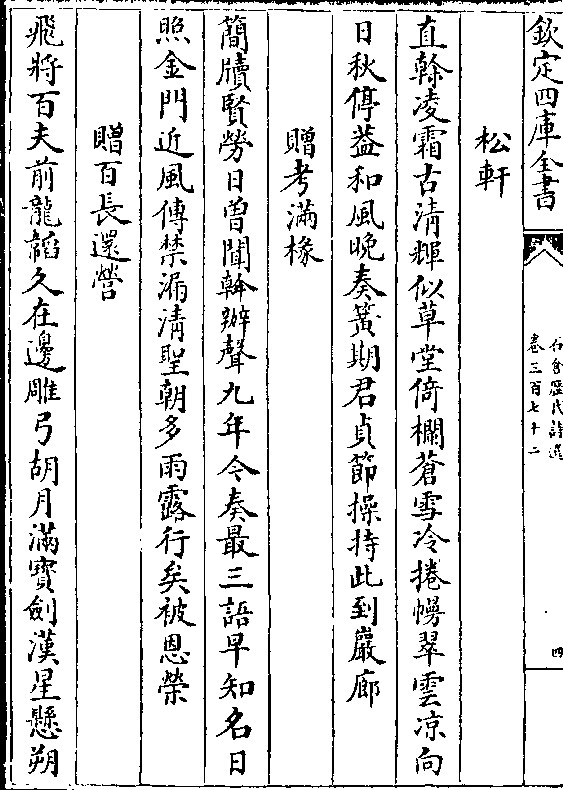 欽定四庫全書
石倉歷代詩選
卷三百七十二
四
松軒
直榦凌霜古清輝似草堂倚欄蒼雪冷捲幔翠雲凉向
日秋停葢和風晚奏簧期君貞節操持此到巖廊
贈考滿椽
簡牘賢勞日曽聞幹辦聲九年今奏最三語早知名日
照金門近風傳禁漏清聖朝多雨露行矣被恩榮
贈百長還營
飛將百夫前龍韜久在邊雕弓胡月滿寳劍漢星懸朔